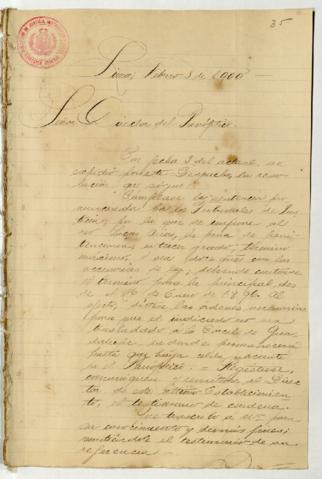 35
Lima, Febrero 3 de 1900
Señor Director del Panóptico.
En fecha 3 del actual se
expidió por este Despacho la reso-
lución que sigue:
"Cúmplase la sentencia pro
nunciada por los Tribunales de Jus
ticia, por la que se impone al
reo Lucas Arias, la pena de peni
tenciaria en tercer grado, término
máximo, ó sea doce años con las
accesorias de ley, debiendo contarse
el término para la principal, des
de el de Enero de 1896. Al
efecto, díctese las órdenes necesarias
para que el indicado reo sea
trasladado á la Cárcel de Gua
dalupe, en donde permanecerá
hasta que haya celda vacante
en el Panóptico. = Regístrese,
comuníquese y remítase al Direc
tor de este último Establecimien
to, el testimonio de condena.
Que transcribo á US. para
su conocimiento y demás fines;
remitiéndole el testimonio de su
referencia